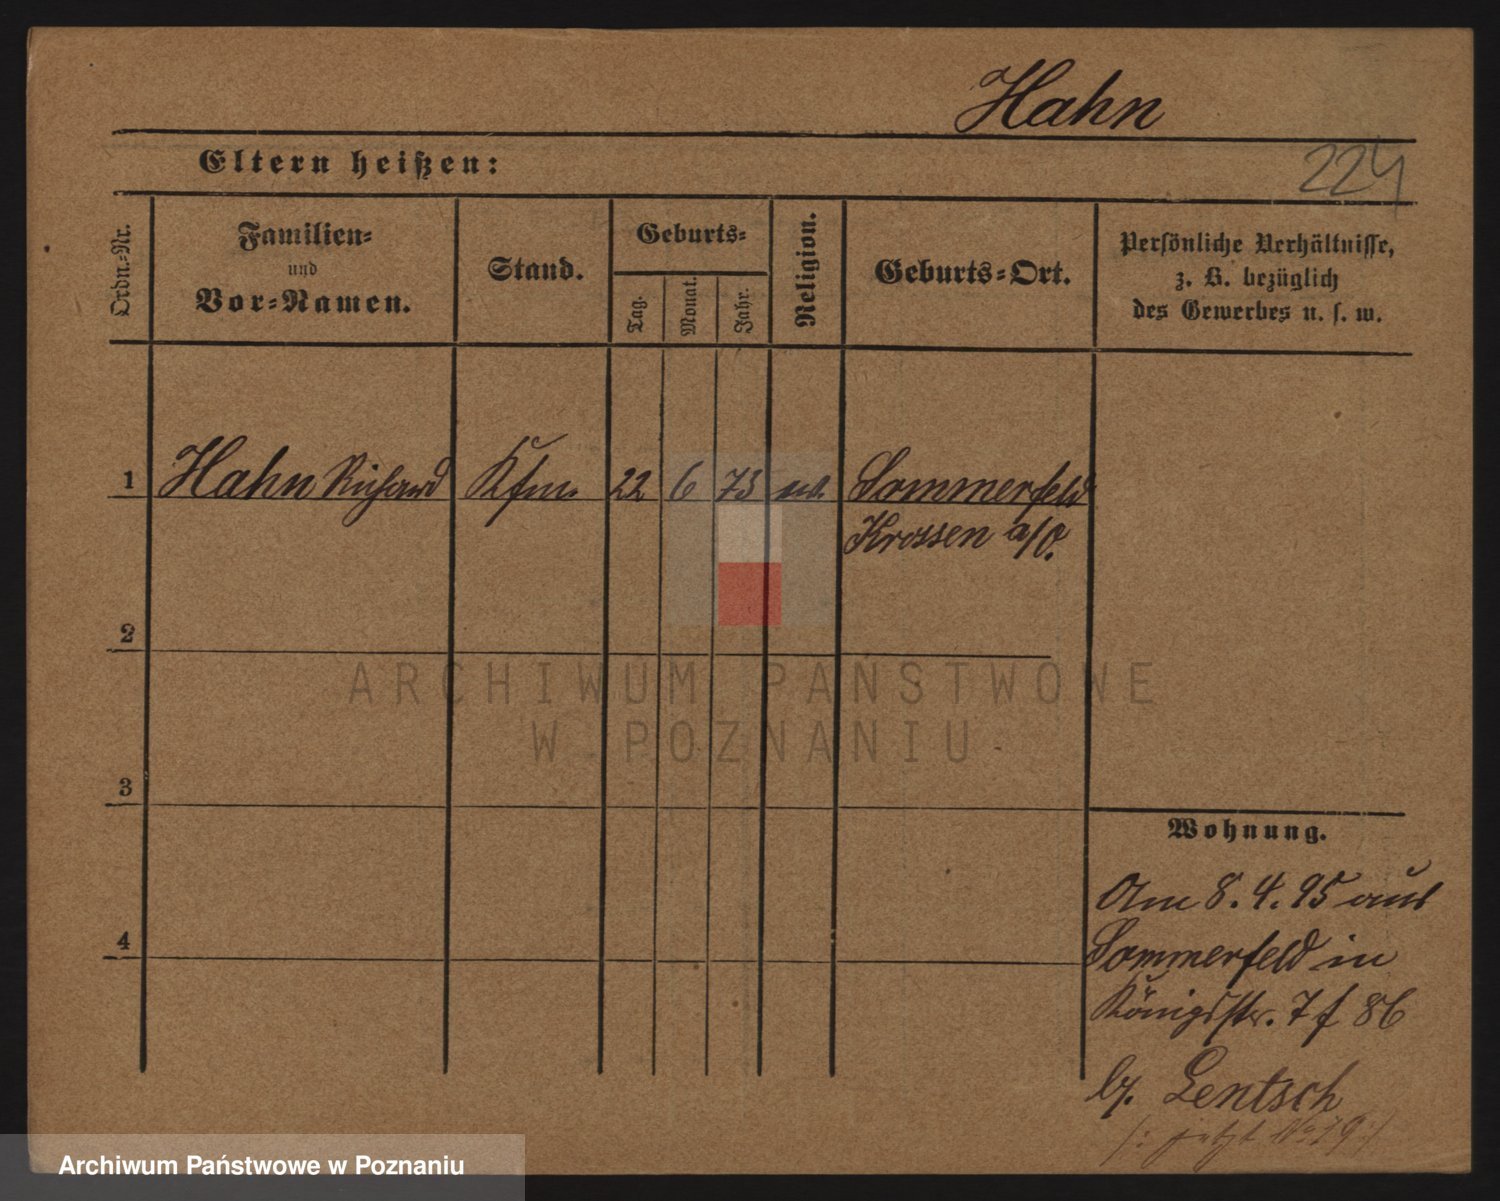 Hahn
224
Eltern heißen:
Ordn.-Nr.
Familien-
und
Vor-Namen.
Stand.
Geburts-
Tag.
Monat.
Jahr.
Religion.
Geburts-Ort.
Persönliche Verhältnisse,
z. B. bezüglich
des Gewerbes u. s. w.
1 Hahn Richard Kfm. 22 6 73 ev. Sommerfeld
Krossen a/O.
2
3
4
Wohnung.
Am 8.4.95 aus
Sommerfeld in
Königsstr. 7 f 86
bz. Lentsch
/: jetzt No 19 :/
ARCHIWUM PAŃSTWOWE
W POZNANIU
Archiwum Państwowe w Poznaniu